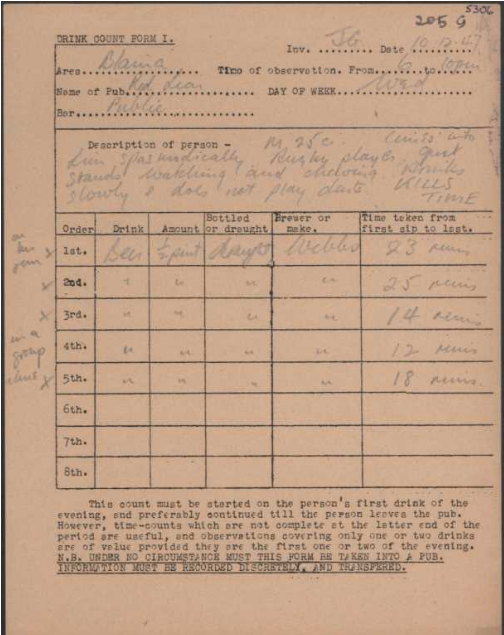 5306
205 G
DRINK COUNT FORM I.
Inv. JG. Date 10.12.47
Area Blaina Time of observation. From 6 to 10pm
Name of Pub Red Lion DAY OF WEEK Wed
Bar Public
Description of person - M 25 C
spasmodically Rugby player
Stands watching and chewing Drinks
slowly & does not play darts. KILLS
TIME
Order Drink Amount Bottled or draught Brewer or make. Time taken from first sip to last.
1st. Beer ½ pint draught Webbs 23 mins
2nd. " " " " 25 mins
3rd. " " " " 14 mins
4th. " " " " 12 mins
5th. " " " " 18 mins
6th.
7th.
8th.
x
x
in a
group
x
This count must be started on the person's first drink of the
evening, and preferably continued till the person leaves the pub.
However, time-counts which are not complete at the latter end of the
period are useful, and observations covering only one or two drinks
are of value provided they are the first one or two of the evening.
N.B. UNDER NO CIRCUMSTANCE MUST THIS FORM BE TAKEN INTO A PUB.
INFORMATION MUST BE RECORDED DISCRETELY, AND TRANSFERED.